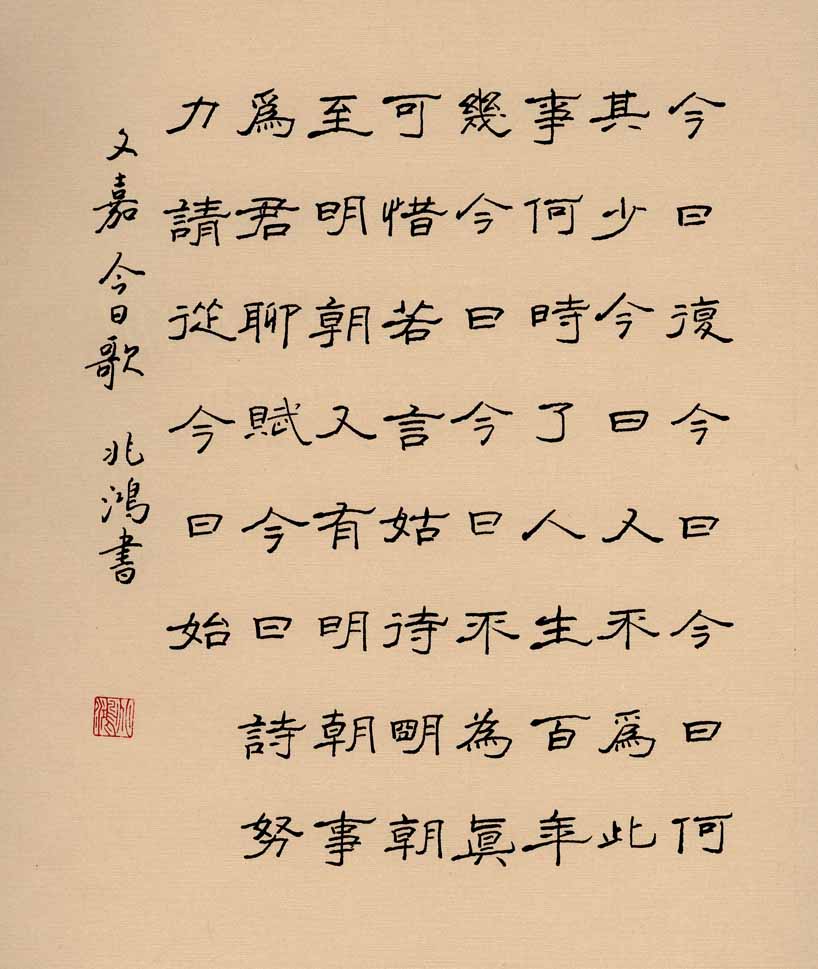 今日復今日今日何
其少今日又不爲此
事何時了人生百年
幾今日今日不為眞
可惜若言姑待明朝
至明朝又有明朝事
爲君聊賦今日詩努
力請從今日始
文嘉今日歌 兆鴻書
兆鴻